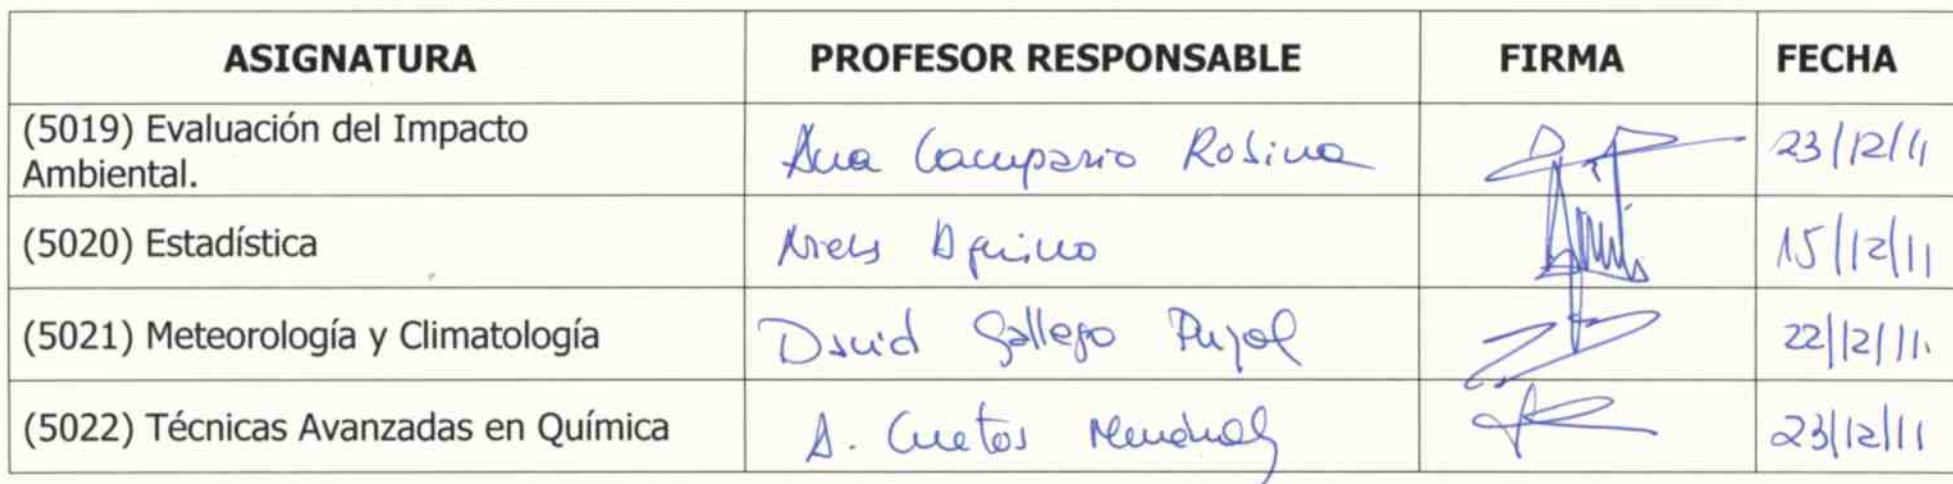 ASIGNATURA PROFESOR RESPONSABLE FIRMA FECHA
(5019) Evaluación del Impacto
Ambiental.
Ana Campano Robina 23/12/11
(5020) Estadística Niels 15/12/11
(5021) Meteorología y Climatología David Gallego Puyol 22/12/11.
(5022) Técnicas Avanzadas en Química A. Cuetos 23/12/11